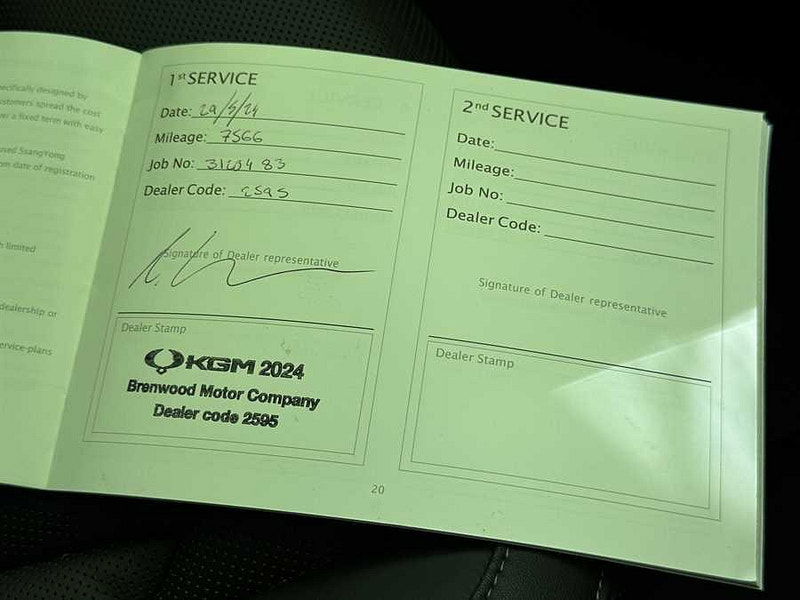 pecifically designed by
ustomers spread the cost
ver a fixed term with easy
used SsangYong
om date of registration
h limited
dealership or
ervice-plans
1st SERVICE
Date: 29/5/24
Mileage: 7566
Job No:
Dealer Code: 2595
Signature of Dealer representative
Dealer Stamp
KGM 2024
Brenwood Motor Company
Dealer code 2595
2nd SERVICE
Date:
Mileage:
Job No:
Dealer Code:
Signature of Dealer representative
Dealer Stamp
20